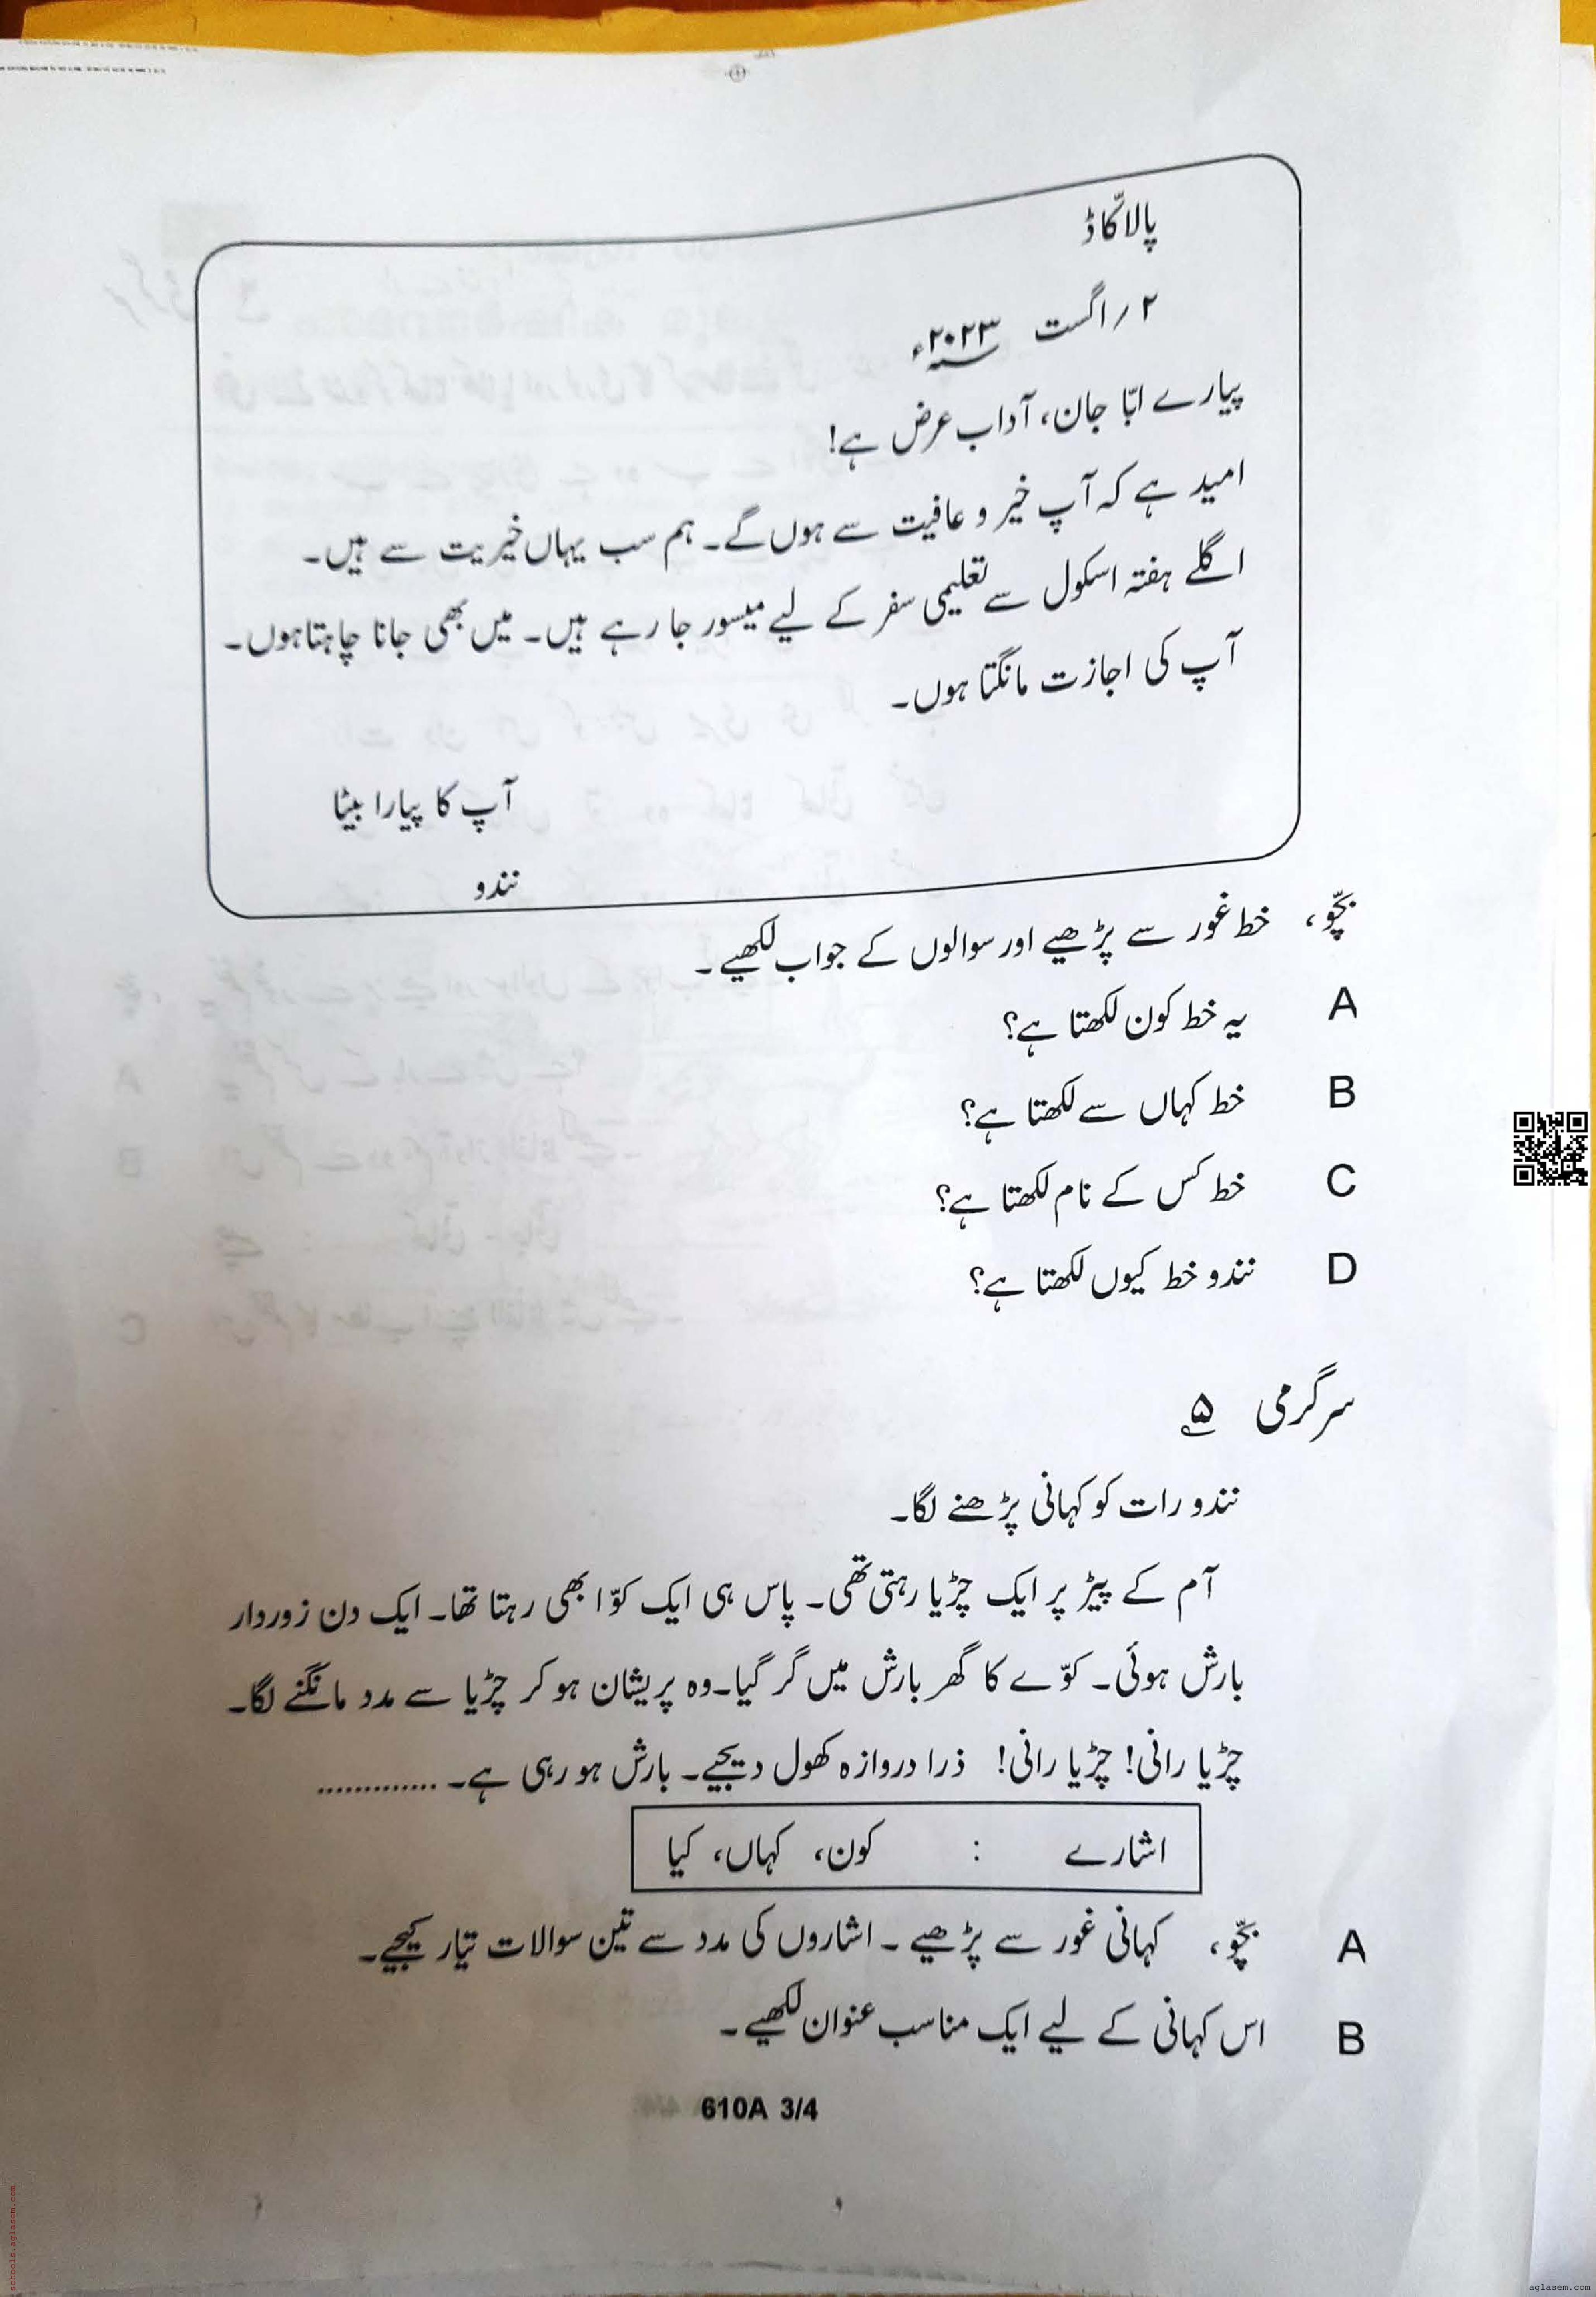 پالاکّاڈ
۲/اگست ۲۰۲۳ء
پیارے ابّا جان، آداب عرض ہے!
امید ہے کہ آپ خیر و عافیت سے ہوں گے۔ ہم سب یہاں خیریت سے ہیں۔
اگلے ہفتہ اسکول سے تعلیمی سفر کے لیے میسور جا رہے ہیں۔ میں بھی جانا چاہتا ہوں۔
آپ کی اجازت مانگتا ہوں۔
آپ کا پیارا بیٹا
نندو
بچّو، خط غور سے پڑھیے اور سوالوں کے جواب لکھیے۔
A یہ خط کون لکھتا ہے؟
B خط کہاں سے لکھتا ہے؟
C خط کس کے نام لکھتا ہے؟
D نندو خط کیوں لکھتا ہے؟
سرگرمی ۵
نندو رات کو کہانی پڑھنے لگا۔
آم کے پیڑ پر ایک چڑیا رہتی تھی۔ پاس ہی ایک کوّا بھی رہتا تھا۔ ایک دن زوردار
بارش ہوئی۔ کوّے کا گھر بارش میں گر گیا۔ وہ پریشان ہو کر چڑیا سے مدد مانگنے لگا۔
چڑیا رانی! چڑیا رانی! ذرا دروازہ کھول دیجیے۔ بارش ہو رہی ہے۔ .............
اشارے : کون، کہاں، کیا
A بچّو، کہانی غور سے پڑھیے ۔ اشاروں کی مدد سے تین سوالات تیار کیجیے۔
B اس کہانی کے لیے ایک مناسب عنوان لکھیے ۔
610A 3/4
schools.aglasem.com
aglasem.com